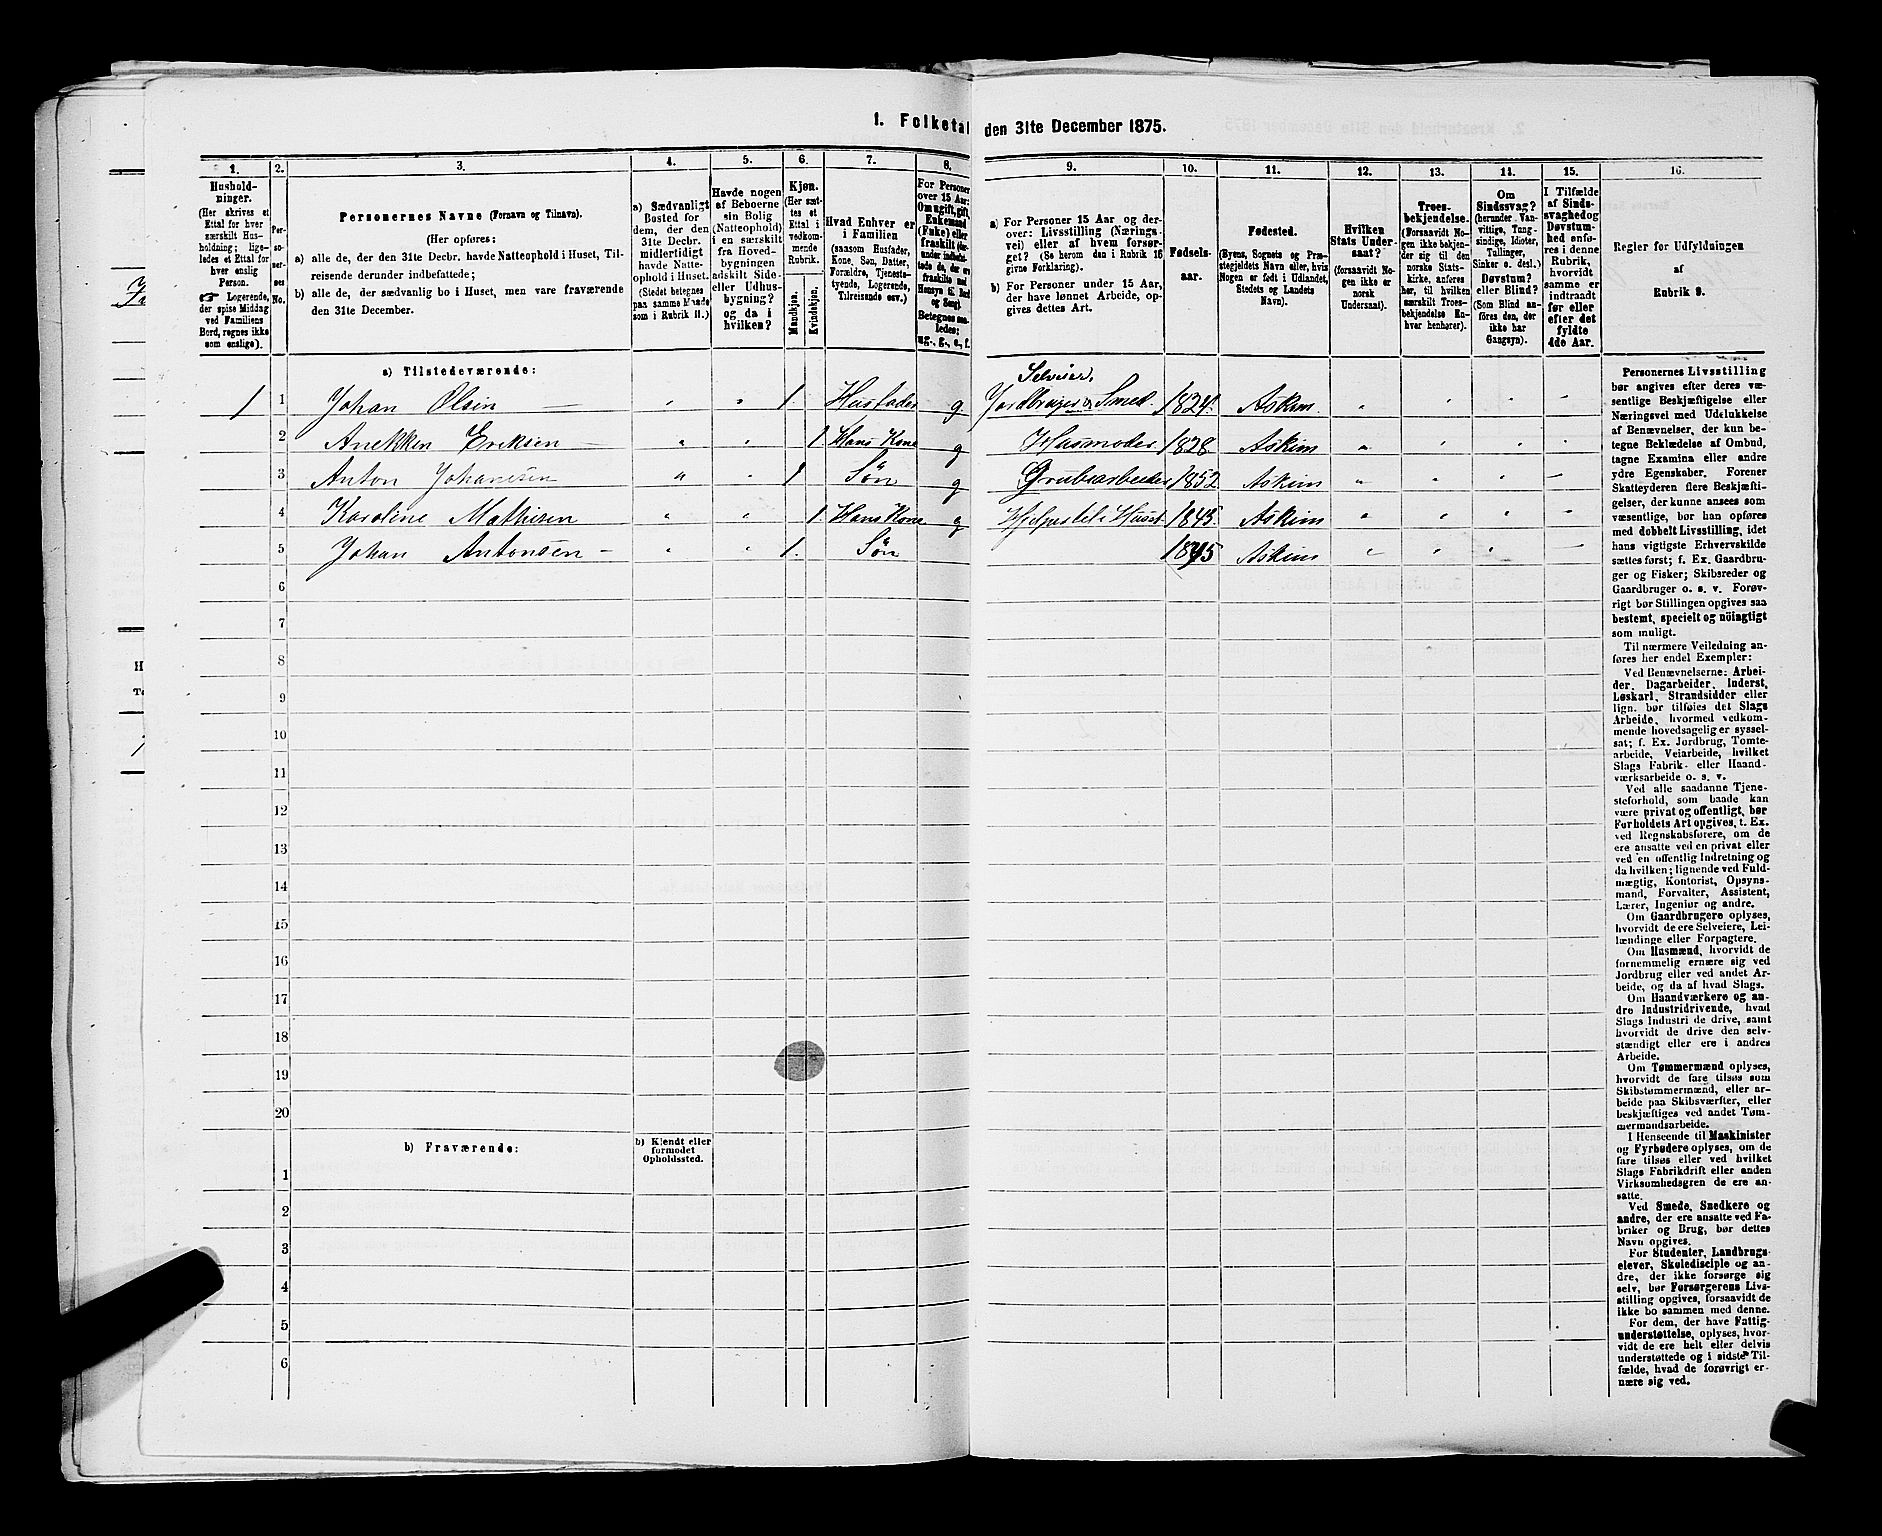 1. Folketal den 31te December 1875.
1. 2. 3. 4. 5. 6. 7. 8. 9. 10. 11. 12. 13. 14. 15. 16.
Hushold-
ninger.
(Her skrives et
Ettal for hver
særskilt Hus-
holdning; lige-
ledes et Ettal for
hver enslig
Person.
☞ Logerende,
der spise Middag
ved Familiens
Bord, regnes ikke
som enslige).
Per-
so-
ner-
nes
No.
Personernes Navne (Fornavn og Tilnavn).
(Her opføres:
a) alle de, der den 31te Decbr. havde Natteophold i Huset, Til-
reisende derunder indbefattede;
b) alle de, der sædvanlig bo i Huset, men vare fraværende
den 31te December.
a) Sædvanligt
Bosted for
dem, der den
31te Decbr.
midlertidigt
havde Natte-
ophold i Huset.
(Stedet betegnes
paa samme Maade
som i Rubrik 11.)
Havde nogen
af Beboerne
sin Bolig
(Natteophold)
i en særskilt
fra Hoved-
bygningen
adskilt Side-
eller Udhus-
bygning?
og da i
hvilken?
Kjøn.
(Her sæt-
tes et
Ettal i
vedkom-
mende
Rubrik.
Mandkjøn.
Kvindekjøn.
Hvad Enhver er
i Familien
(saasom Husfader,
Kone, Søn, Datter,
Forældre, Tjeneste-
tyende, Logerende,
Tilreisende osv.)
For Personer
over 15 Aar:
Om ugift, gift,
Enkemand
(Enke) eller
fraskilt (der-
under indbefat-
tede de, der ere
fraskilte med
Hensyn til Bord
og Seng).
Betegnes saa-
ledes:
ug., g., e., f.
a) For Personer 15 Aar og der-
over: Livsstilling (Nærings-
vei) eller af hvem forsør-
get? (Se herom den i Rubrik 16
givne Forklaring).
b) For Personer under 15 Aar,
der have lønnet Arbeide, op-
gives dettes Art.
Fødsels-
aar.
Fødested.
(Byens, Sognets og Præ-
stegjeldets Navn eller, hvis
Nogen er født i Udlandet,
Stedets og Landets
Navn).
Hvilken
Stats Under-
saat?
(forsaavidt No-
gen ikke er
norsk
Undersaat).
Troes-
bekjendelse.
(Forsaavidt No-
gen ikke bekjen-
der sig til den
norske Stats-
kirke, anføres
her, til hvilken
særskilt Troes-
bekjendelse En-
hver henhører).
Om
Sindssvag?
(herunder Van-
vittige, Tung-
sindige, Idioter,
Tullinger,
Sinker o. desl.)
Døvstum?
eller Blind?
(Som Blind an-
føres den, der
ikke har
Gangsyn).
I Tilfælde
af Sinds-
svaghed og
Døvstum-
hed anfø-
res i denne
Rubrik,
hvorvidt
samme er
indtraadt
før eller
efter det
fyldte
4de Aar.
Regler for Udfyldningen
af
Rubrik 9.
a) Tilstedeværende:
Selveier,
1 1 Johan Olsen — " " 1. Husfader g Jordbruger og Smed. 1824. Askim. " " " "
2 Anekken Eriksen — " " 1. Hans Kone g Husmoder 1828. Askim " " " "
3 Anton Johansen " " 1 Søn g Grubearbeider 1852 Askim " " " "
4 Karoline Mathisen " " 1. Hans Kone g Hjelper til i Huset 1845. Askim " " " "
5 Johan Antonsen — " " 1. Søn Askim " " " "
6
7
8
9
10
11
12
13
14
15
16
17
18
19
20
b) Fraværende:
b) Kjendt eller
formodet
Opholdssted.
1
2
3
4
5
6
Personernes Livsstilling
bør angives efter deres væ-
sentlige Beskjæftigelse eller
Næringsvei med Udelukkelse
af Benævnelser, der kun be-
tegne Beklædelse af Ombud,
tagne Examina eller andre
ydre Egenskaber. Forener
Skatteyderen flere Beskjæfti-
gelser, der kunne ansees som
væsentlige, bør han opføres
med dobbelt Livsstilling, idet
hans vigtigste Erhvervskilde
sættes først; f. Ex. Gaardbru-
ger og Fisker; Skibsreder og
Gaardbruger o. s. v. Forøv-
rigt bør Stillingen opgives saa
bestemt, specielt og nöiagtigt
som muligt.
Til nærmere Veiledning an-
føres her endel Exempler:
Ved Benævnelserne: Arbei-
der, Dagarbeider, Inderst,
Løskarl, Strandsidder eller
lign. bør tilføies det Slags
Arbeide, hvormed vedkom-
mende hovedsagelig er syssel-
sat; f. Ex. Jordbrug, Tomte-
arbeide, Veiarbeide, hvilket
Slags Fabrik- eller Haand-
værksarbeide o. s. v.
Ved alle saadanne Tjene-
steforhold, som baade kan
være privat og offentligt, bør
Forholdets Art opgives, t. Ex.
ved Regnskabsførere, om de
ere ansatte ved en privat eller
ved en offentlig Indretning og
da hvilken; lignende ved Fuld-
mægtig, Kontorist, Opsyns-
mand, Forvalter, Assistent,
Lærer, Ingeniør og andre.
Om Gaardbrugere oplyses,
hvorvidt de ere Selveiere, Lei-
lændinge eller Forpagtere.
Om Husmænd, hvorvidt de
fornemmelig ernære sig ved
Jordbrug eller ved andet Ar-
beide, og da af hvad Slags.
Om Haandværkere og an-
dre Industridrivende, hvad
Slags Industri de drive, samt
hvorvidt de drive den selv-
stændigt eller ere i andres
Arbeide.
Om Tømmermænd oplyses,
hvorvidt de fare tilsøs som
Skibstømmermænd, eller ar-
beide paa Skibsværfter, eller
beskjæftiges ved andet Tøm-
mermandsarbeide.
I Henseende til Maskinister
og Fyrbødere oplyses, om de
fare tilsøs eller ved hvilket
Slags Fabrikdrift eller anden
Virksomhedsgren de ere an-
satte.
Ved Smede, Snedkere og
andre, der ere ansatte ved Fa-
briker og Brug, bør dettes
Navn opgives.
For Studenter, Landbrugs-
elever, Skoledisciple og an-
dre, der ikke forsørge sig
selv, bør Forsørgerens Livs-
stilling opgives, forsaavidt de
ikke bo sammen med denne.
For dem, der have Fattig-
understøttelse, oplyses, hvor-
vidt de ere helt eller delvis
understøttede og i sidste Til-
fælde, hvad de forøvrigt er-
nære sig ved.